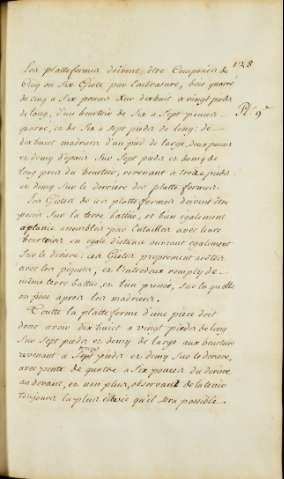 128
Les platteformes doivent être Composées de
Cinq ou Six Gistes par l'anbrasure, bois quarré
de cinq a Six pouces Sur dixhuit a vingt pieds
de long, d'un heurtoir de Six a Sept pouces
Pl. 9e
quarré, et de Six a Sept pieds de long; de
dixhuit madriers d'un pied de large, deux pouces
et demy d'épais Sur Sept pieds et demy de
long près du heurtoir, revenant a treize pieds
et demy Sur le derriere des platteformes.
Les Gistes de ces platteformes doivent être
posés Sur la terre battue, et bien egalement
aplanie assemblés par Entailles avec leurs
heurtoirs en egale distance ouvrant egalement
Sur le deriere; ces Gistes proprement arêtés
avec les piquets, et l'entredeux remply de
même terre battue, et bien pressée, Sur laquelle
on pose apres les madriers.
Toutte la platteforme d'une piece doit
donc avoir dix huict a vingt pieds de long
Sur Sept pieds et demy de large aux heurtoirs
revenant a treize pieds et demy Sur le deriere,
avec pente de quatre a Six pouces du deriere
au devant, et non plus, observant de la tenir
toujours la plus élevée qu'il sera possible.